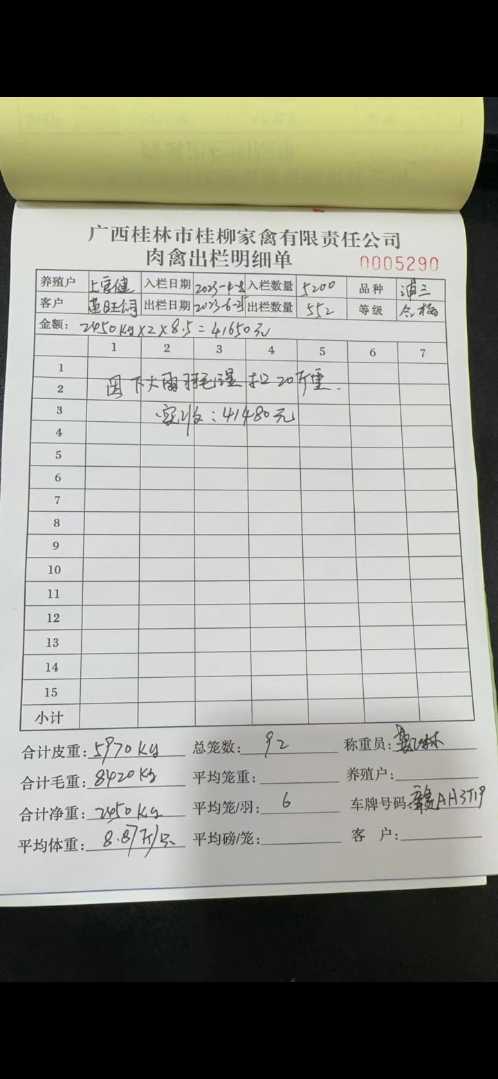 广西桂林市桂柳家禽有限责任公司
肉禽出栏明细单
0005290
养殖户 上官健 入栏日期 入栏数量 5200 品种
客户 出栏日期 出栏数量 552 等级 合格
金额: 2450kg×2×8.5=41650元
1 2 3 4 5 6 7
1
2 因下大雨羽毛湿 扣20斤重.
3 实收:41480元
4
5
6
7
8
9
10
11
12
13
14
15
小计
合计皮重: 5970kg 总笼数: 92 称重员:
合计毛重: 8420kg 平均笼重: 养殖户:
合计净重: 2450kg 平均笼/羽: 6 车牌号码
平均体重: 8.87斤/只 平均磅/笼: 客 户: